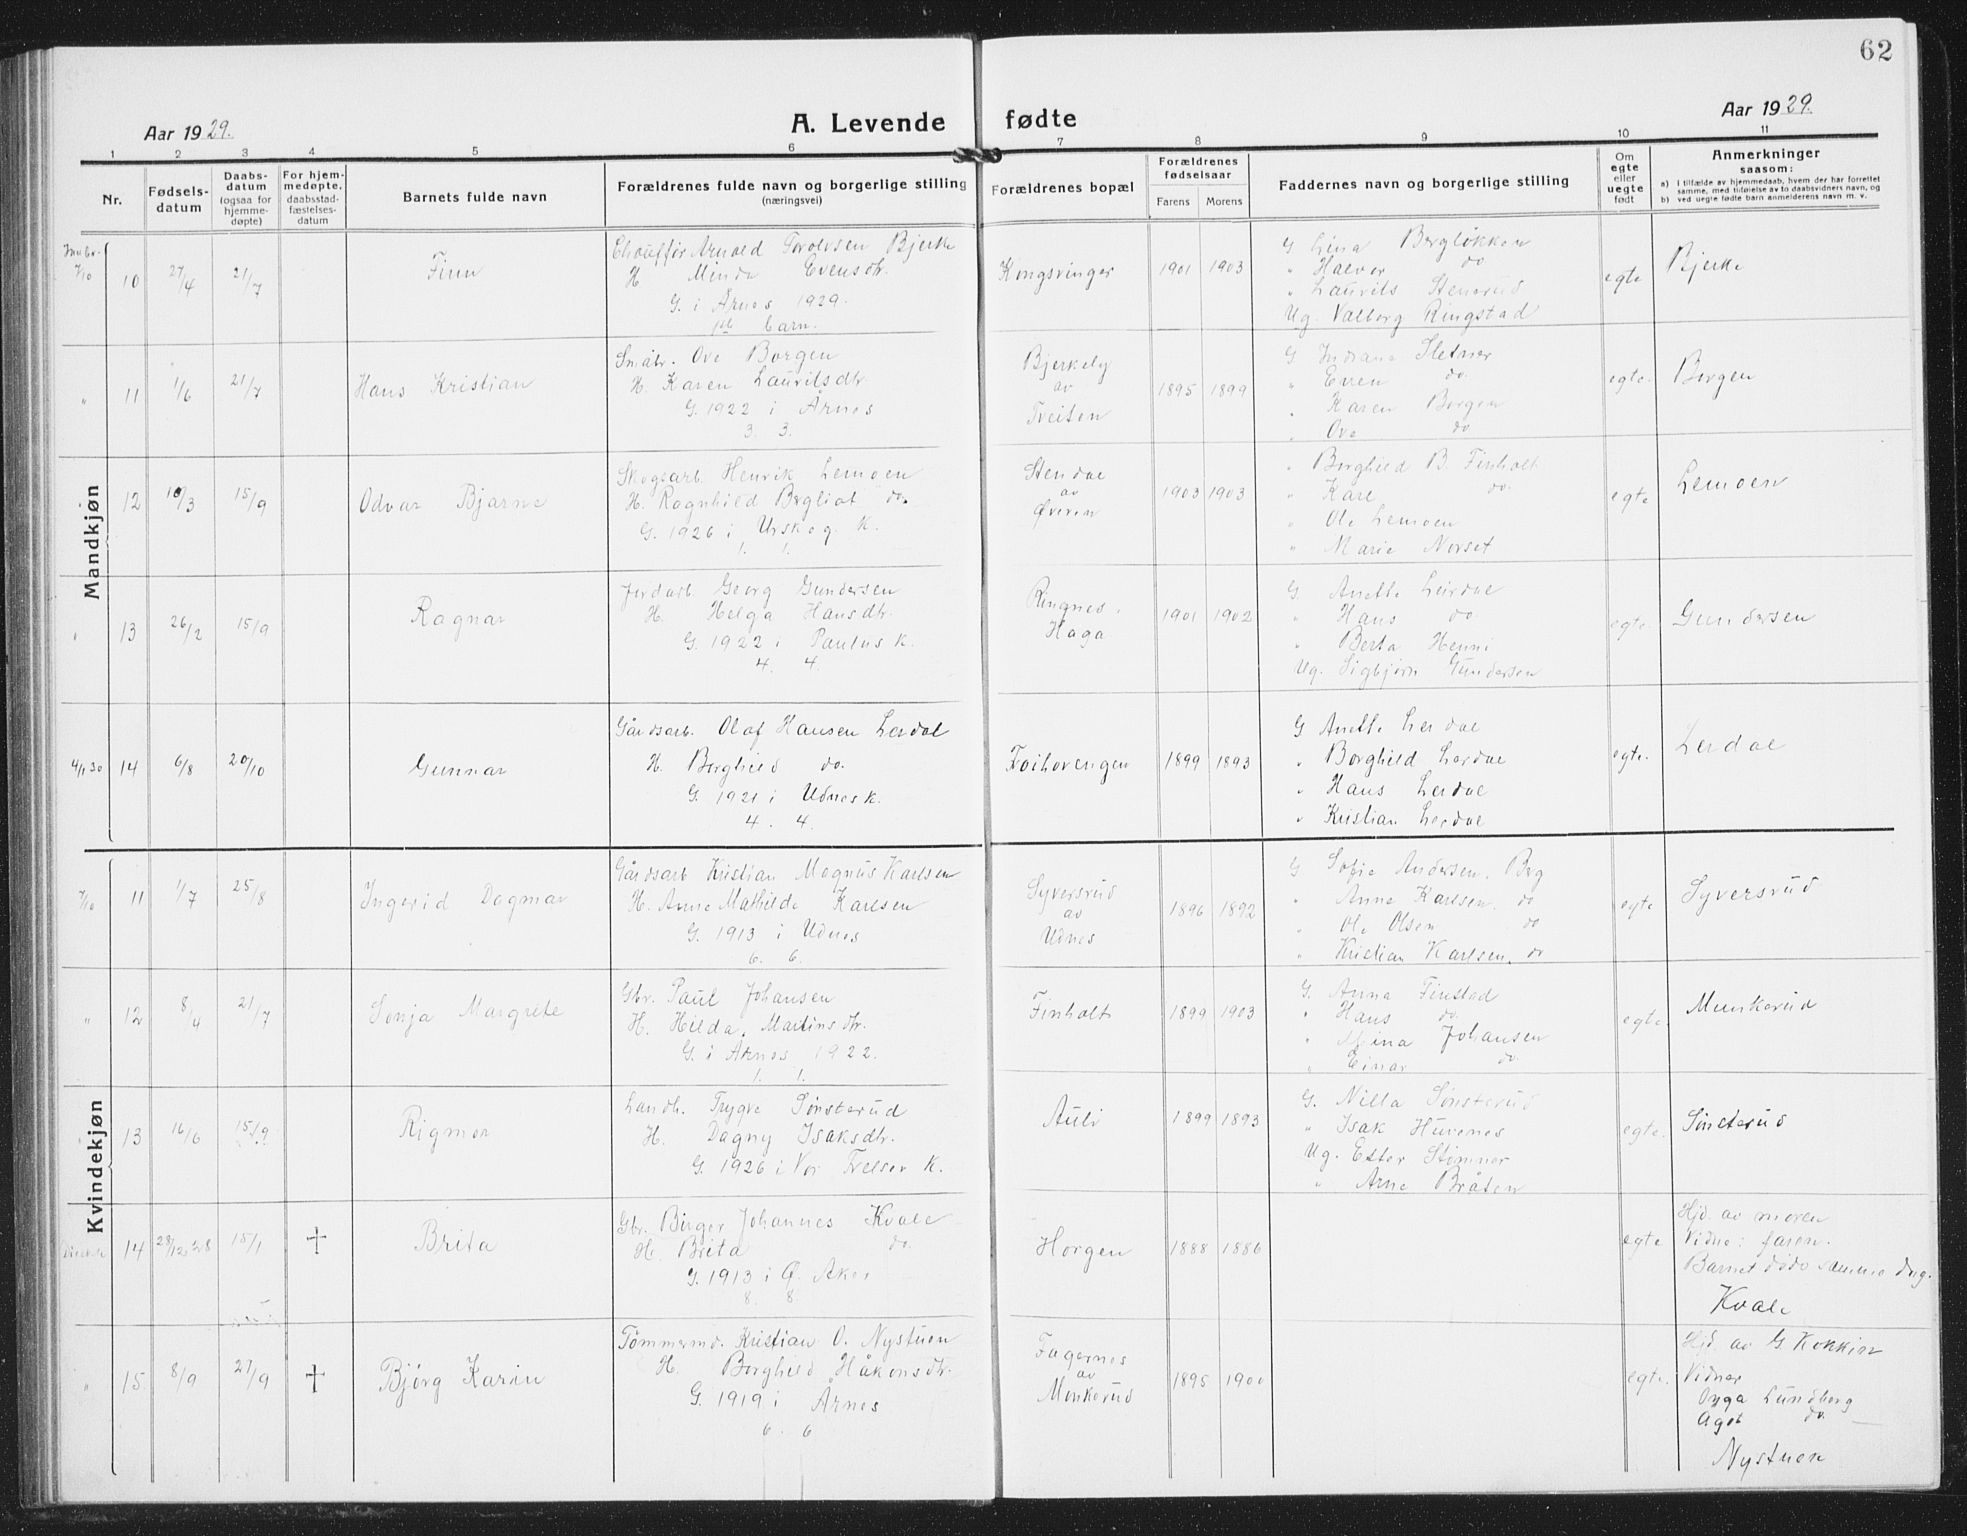 62
Aar 1929.
A. Levende fødte
Aar 1929.
1 2 3 4 5 6 7 8 9 10 11
Nr.
Fødsels-
datum
Daabs-
datum
(ogsaa for
hjemme-
døpte)
For hjem-
medøpte,
daabsstad-
fæstelses-
datum
Barnets fulde navn
Forældrenes fulde navn og borgerlige stilling
(næringsvei)
Forældrenes bopæl
Forældrenes
fødselsaar
Farens Morens
Faddernes navn og borgerlige stilling
Om
egte
eller
uegte
født
Anmerkninger
saasom:
a) i tilfælde av hjemmedaab, hvem der har forrettet
samme, med tilføielse av to daabsvidners navn, og
b) ved uegte fødte barn anmelderens navn m. v.
Mandkjøn
7/10 10 27/4 21/7 Finn
Chauffør Arnold Torolvsen Bjerke
H. Minda Evensdtr.
G. i Årnes 1929.
1ste barn.
Kongsvinger 1901 1903
G Lina Bergløkken
" Halvor do
" Laurits Stenerud
Ug. Valborg Ringstad
egte Bjerke
" 11 1/6 21/7 Hans Kristian
Småbr. Ove Borgen
H. Karen Lauritsdtr.
G. 1922 i Årnes
3. 3.
Bjerkely
av
Tveiten
1895 1899
G Indiana Sletner
" Even do.
" Karen Borgen
" Ove do
egte. Borgen
12 10/3 15/9 Odvar Bjarne
Skogsarb. Henrik Lemoen
H. Ragnhild Bergliot do.
G. 1926 i Urskog K.
1. 1.
Stendal
av
Øveren
1903 1903
" Borghild B. Finholt
" Karl do.
" Ole Lemoen
" Marie Norset
egte Lemoen
" 13 26/2 15/9 Ragnar
Jordarb. Georg Gundersen
H. Helga Hansdtr.
G. 1922 i Paulus K.
4. 4.
Ringnes,
Haga
1901 1902
G. Anette Leirdal
" Hans do.
" Berta Henni
Ug. Sigbjørn Gundersen
egte. Gundersen
4/1 30 14 6/8 20/10 Gunnar
Gårdsarb. Olaf Hansen Lerdal
H. Borghild do.
G. 1921 i Udnes K.
4. 4.
Foihovengen 1899 1893
G Anette Lerdal
" Borghild Lerdal
" Hans Lerdal
" Kristian Lerdal
egte. Lerdal
Kvindekjøn
7/10 11 1/7 25/8 Ingerid Dagmar
Gårdsarb Kristian Magnus Karlsen
H. Anna Mathilde Karlsen
G. 1913 i Udnes
6. 6.
Syversrud
av
Udnes
1896 1892
G Sofie Andersen, Berg
" Anna Karlsen, do
" Ole Olsen do
" Kristian Karlsen, do
egte Syversrud
" 12 8/4 21/7 Sonja Margrete
Gbr. Paul Johansen
H. Hilda Martinsdtr.
G. i Årnes 1922.
1. 1.
Finholt 1899 1903
G. Anna Finstad
" Hans do.
" Mina Johansen
" Einar do.
egte. Munkerud
13 16/6 15/9 Rigmor
Landh. Trygve Sønsterud
H. Dagny Isaksdtr.
G. 1926 i Vor Frelser K.
Auli 1899 1893
G. Nilla Sønsterud
" Isak Huvenes
Ug. Ester Stømner
" Arne Bråten
egte. Sønsterud
14 28/12 28 15/1 † Brita
Gbr. Birger Johannes Kvale
H. Brita do.
G. 1913 i Ø. Aker
8. 8.
Horgen 1888 1886
egte
Hjd. av moren
Vidne: faren.
Barnet døde samme dag.
Kvale
" 15. 8/9 27/9 † Bjørg Karin
Tømmermd. Kristian O. Nystuen
H. Borghild Håkonsdtr.
G. 1919 i Årnes
6. 6
Fagernes
av
Munkerud
1895 1900
egte.
Hjd. av G. Kokkin
Vidner
Lundberg
Agot do.
Nystuen